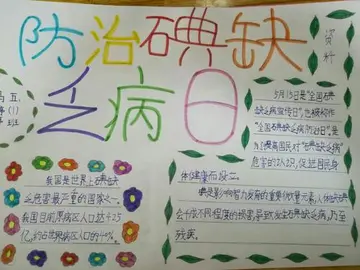 防治碘缺
乏病日
资料
五(1)班
5月15日是"全国碘
缺乏病宣传日",也被称作
"全国碘缺乏病防治日",是
为了提高国民对"碘缺乏病"
危害的认识,促进国民身
体健康而设立。
碘是影响智力发育的重要微量元素,人体缺碘
会十成不同程度的损害,导致发生碘缺乏病,乃至
残疾。
我国是世界上碘缺
乏危害最严重的国家之一。
我国目前病区人口达4.25
亿,约占世界病区人口的40%。